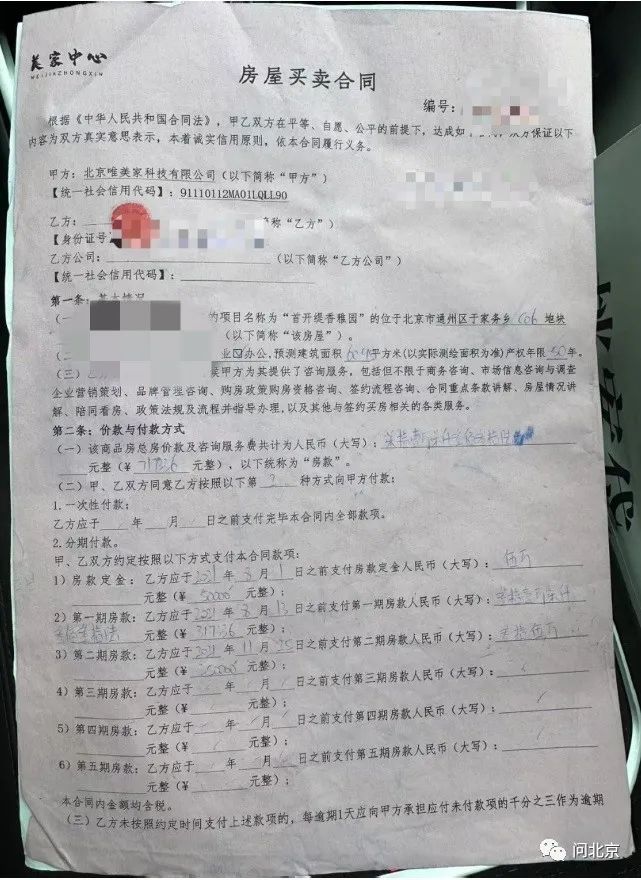 美家中心
WEIJIAZHONGXIN
房屋买卖合同
编号：
根据《中华人民共和国合同法》，甲乙双方在平等、自愿、公平的前提下，达成如
双方保证以下
内容为双方真实意思表示，本着诚实信用原则，依本合同履行义务。
甲方：北京唯美家科技有限公司（以下简称“甲方”）
【统一社会信用代码】：91110112MA01LQLL90
乙方：
简称“乙方”）
【身份证号
乙方公司：（以下简称“乙方公司”）
【统一社会信用代码】：
第一条：基本情况
（一 的项目名称为“首开缇香雅园”的位于北京市通州区于家务乡 C06 地块
（以下简称“该房屋”）。
（二 业☑办公，预测建筑面积 平方米(以实际测绘面积为准)产权年限 50 年。
（三）乙 甲方为其提供了咨询服务，包括但不限于商务咨询、市场信息咨询与调查
企业营销策划、品牌管理咨询、购房政策购房资格咨询、签约流程咨询、合同重点条款讲解、房屋情况讲
解、陪同看房、政策法规及流程并指导办理，以及其他与签约买房相关的各类服务。
第二条：价款与付款方式
（一）该商品房总房价款及咨询服务费共计为人民币（大写）：
元整（¥ 717736 元整），以下统称为“房款”。
（二）甲、乙双方同意乙方按照以下第 2 种方式向甲方付款：
1.一次性付款：
乙方应于 年 月 日之前支付完毕本合同内全部款项。
2.分期付款。
甲、乙双方约定按照以下方式支付本合同款项：
1）房款定金：乙方应于 2021 年 8 月 1 日之前支付房款定金人民币（大写）： 伍万
元整（¥ 50000 元整）；
2）第一期房款：乙方应于 2021 年 8 月 13 日之前支付第一期房款人民币（大写）：
元整（¥ 317736 元整）；
3）第二期房款：乙方应于 2021 年 11 月 25 日之前支付第二期房款人民币（大写）：
元整（¥ 元整）；
4）第三期房款：乙方应于 年 月 日之前支付第三期房款人民币（大写）：
元整（¥ 元整）；
5）第四期房款：乙方应于 年 月 日之前支付第四期房款人民币（大写）：
元整（¥ 元整）；
6）第五期房款：乙方应于 年 月 日之前支付第五期房款人民币（大写）：
元整（¥ 元整）；
本合同内金额均含税。
（三）乙方未按照约定时间支付上述款项的，每逾期1天应向甲方承担应付未付款项的千分之三作为逾期
问北京